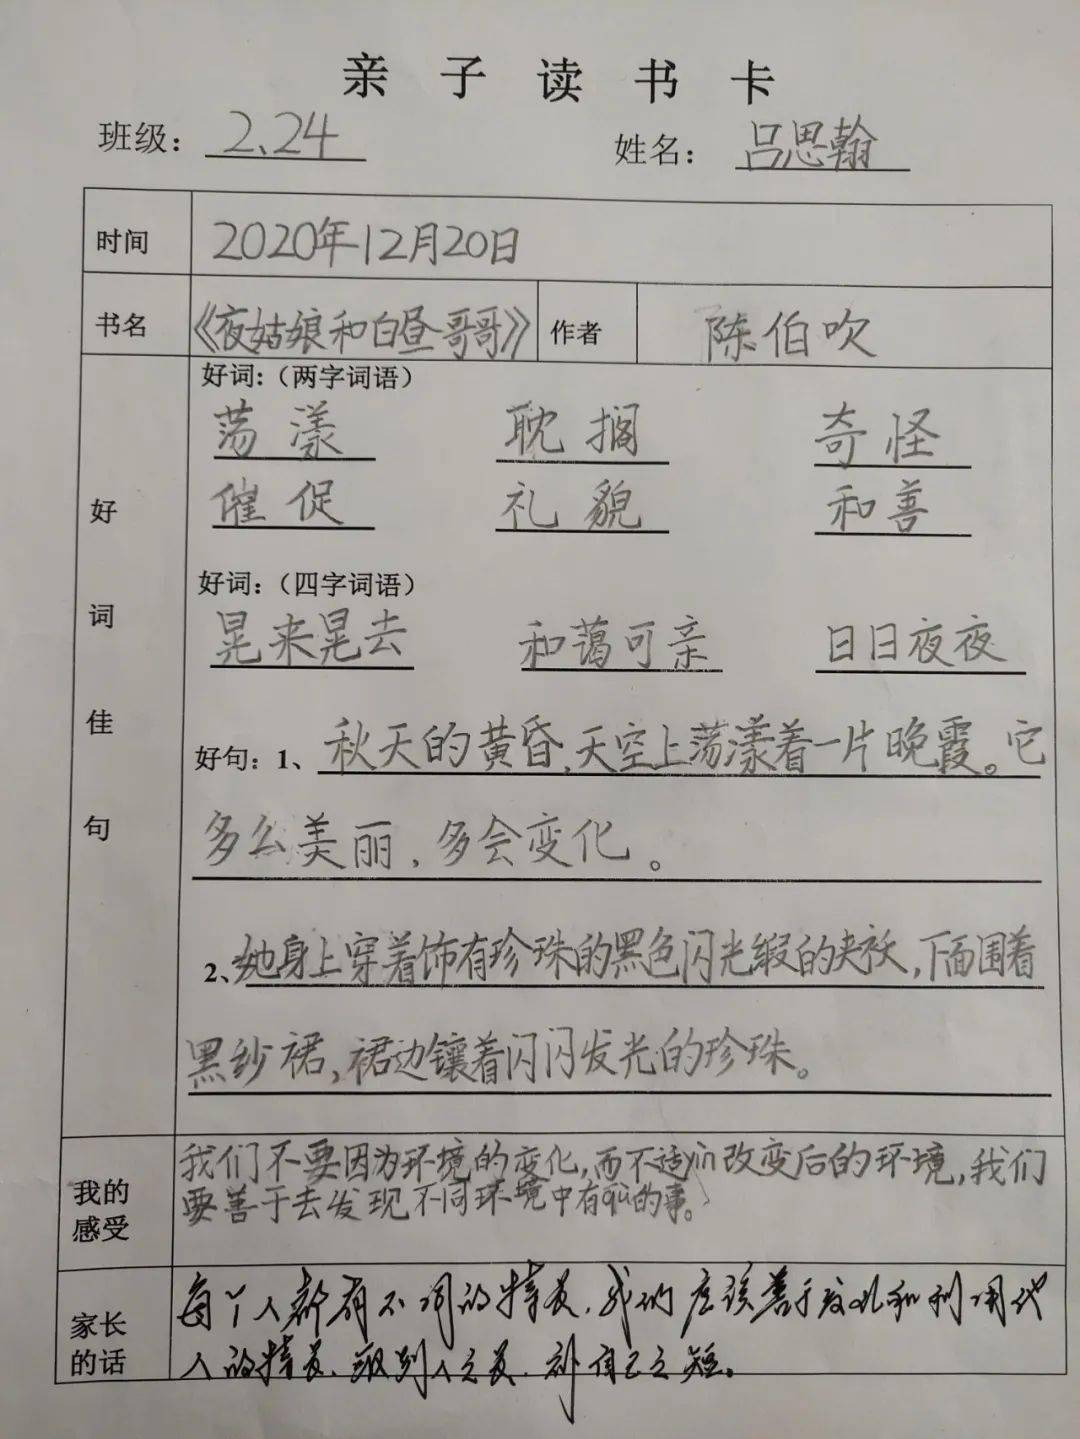 亲子读书卡
班级：2、24 姓名：吕思翰
时间 2020年12月20日
书名 《夜姑娘和白昼哥哥》 作者 陈伯吹
好词佳句
好词：（两字词语）
荡漾 耽搁 奇怪
催促 礼貌 和善
好词：（四字词语）
晃来晃去 和蔼可亲 日日夜夜
好句：1、秋天的黄昏，天空上荡漾着一片晚霞。它
多么美丽，多会变化。
2、她身上穿着饰有珍珠的黑色闪光缎的夹袄，下面围着
黑纱裙，裙边镶着闪闪发光的珍珠。
我的感受
我们不要因为环境的变化，而不适yìn改变后的环境，我们
要善于去发现不同环境中有qù的事。
家长的话
每个人都有不同的特长，我们应该善于发现和利用他
人的特长，取别人之长，补自己之短。